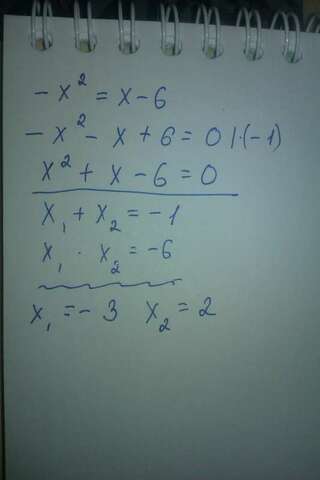 -x² = x-6
-x² - x + 6 = 0 |·(-1)
x² + x - 6 = 0
x₁ + x₂ = -1
x₁ · x₂ = -6
x₁ = -3 x₂ = 2